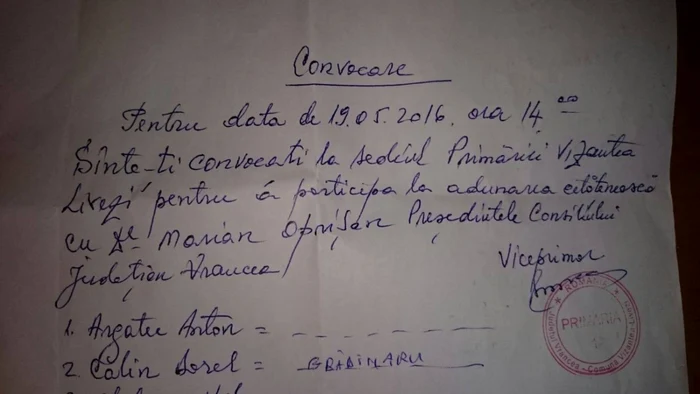 Convocare
Pentru data de 19.05.2016. ora 14 00
Sînte-ti convocati la sediul Primăriei Vizantea
Livezi pentru a participa la adunarea cetătenească
cu Dl Marian Oprișan Președintele Consiliului
Județian Vrancea
Viceprimar
ROMÂNIA
PRIMĂRIA
Județul Vrancea - Comuna Vizantea
1. Argatu Anton =
2. Calin Sorel = GRĂDINARU